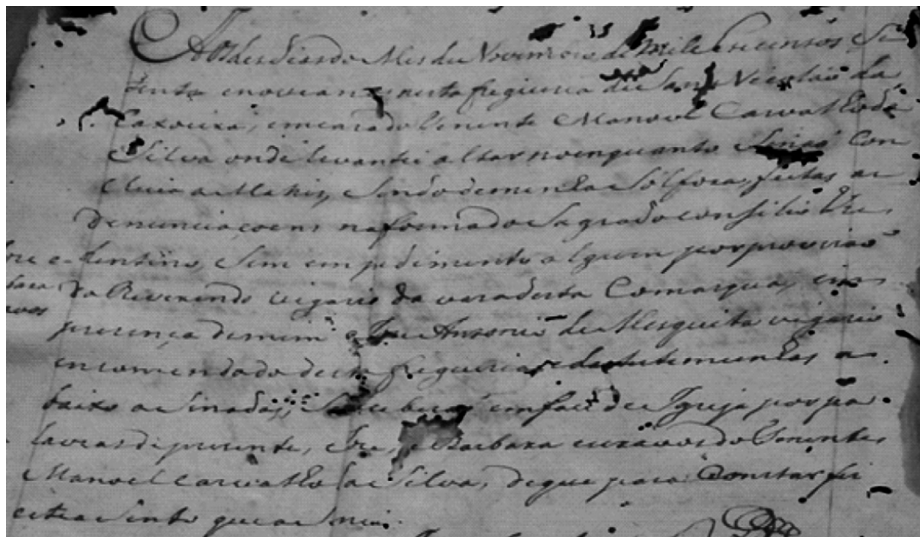 Aos des dias do Mes de Novembro de Mil e Setecentos Se
tenta e nove an nesta freguezia de Sam Nicolau da
Caxoeira, em casa do Tenente Manoel Carvalho da
Silva onde levantei altar no enquanto Senaõ Con
cluia a Matris, Sendo de menha Sól fora, feitas as
denunciaçoens na forma do Sagrado Consilio Tri
dentino, Sem empedimento algum por provizaõ
do Reverendo vigario da vara desta Comarqua, em
prezença de mim Antonio de Mesquita vigario
encomendado desta freguezia e das testemunhas a
baixo asinadas, Se receberaõ em face de Igreja por pa
lavras de prezente, Joze, e Barbara escravos do Tenente
Manoel Carvalho da Silva, de que para Constar fis
este asento que asinei.